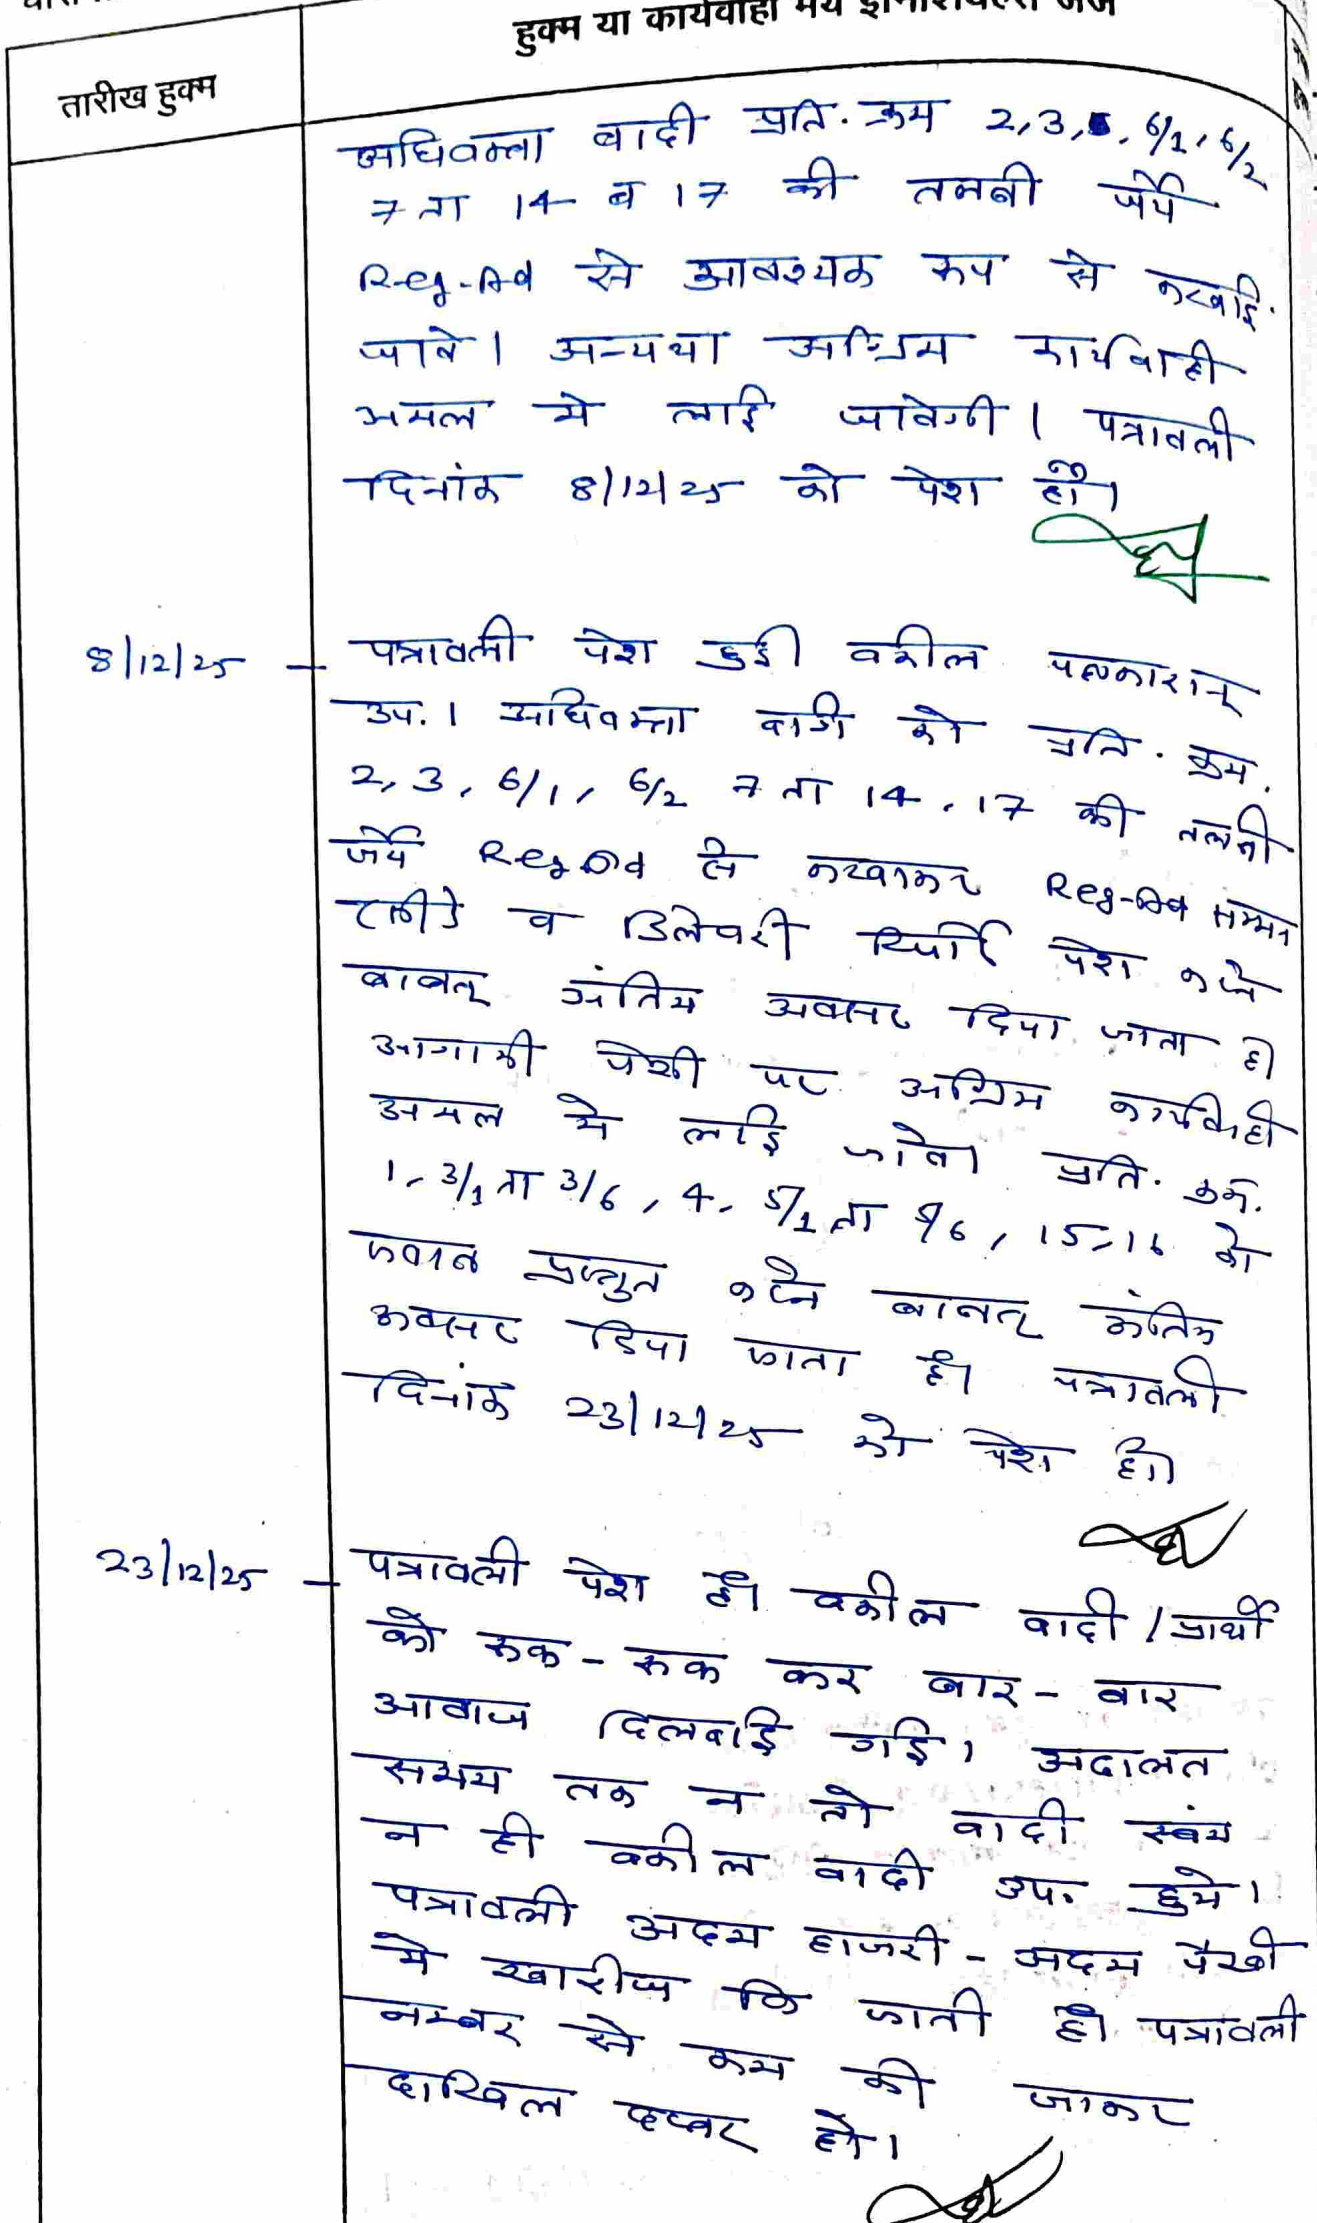 हुक्म या कार्यवाही मय इनिशियल्स जज
तारीख हुक्म
अधिवक्ता वादी प्रति. क्रम 2,3, 6/1, 6/2
7 ता 14 व 17 की तलबी जर्ये
Reg-Ad से आवश्यक रूप से करवाई
जावे। अन्यथा अग्रिम कार्यवाही
अमल मे लाई जावेगी। पत्रावली
दिनांक 8/12/25 को पेश हो।
8/12/25 - पत्रावली पेश हुई वकील पक्षकारान्
उप.। अधिवक्ता वादी को प्रति. क्रम.
2, 3, 6/1, 6/2 7 ता 14, 17 की तलबी
जर्ये Reg Ad से करवाकर Reg-Ad सम्मन
व डिलेवरी रिपोर्ट पेश करने
बाबत् अंतिम अवसर दिया जाता है
आगामी पेशी पर अग्रिम कार्यवाही
अमल मे लाई जावे। प्रति. क्रम.
1, 3/1 ता 3/6, 4, 5/1 ता 5/6, 15,16 को
जवाब प्रस्तुत करने बाबत् अंतिम
अवसर दिया जाता है। पत्रावली
दिनांक 23/12/25 को पेश हो।
23/12/25 - पत्रावली पेश है। वकील वादी/प्रार्थी
को रूक-रूक कर बार-बार
आवाज दिलवाई गई। अदालत
समय तक न तो वादी स्वंय
न ही वकील वादी उप. हुये।
पत्रावली अदम हाजरी - अदम पैरवी
मे खारीज कि जाती है। पत्रावली
नम्बर से कम की जाकर
दाखिल दफ्तर हो।